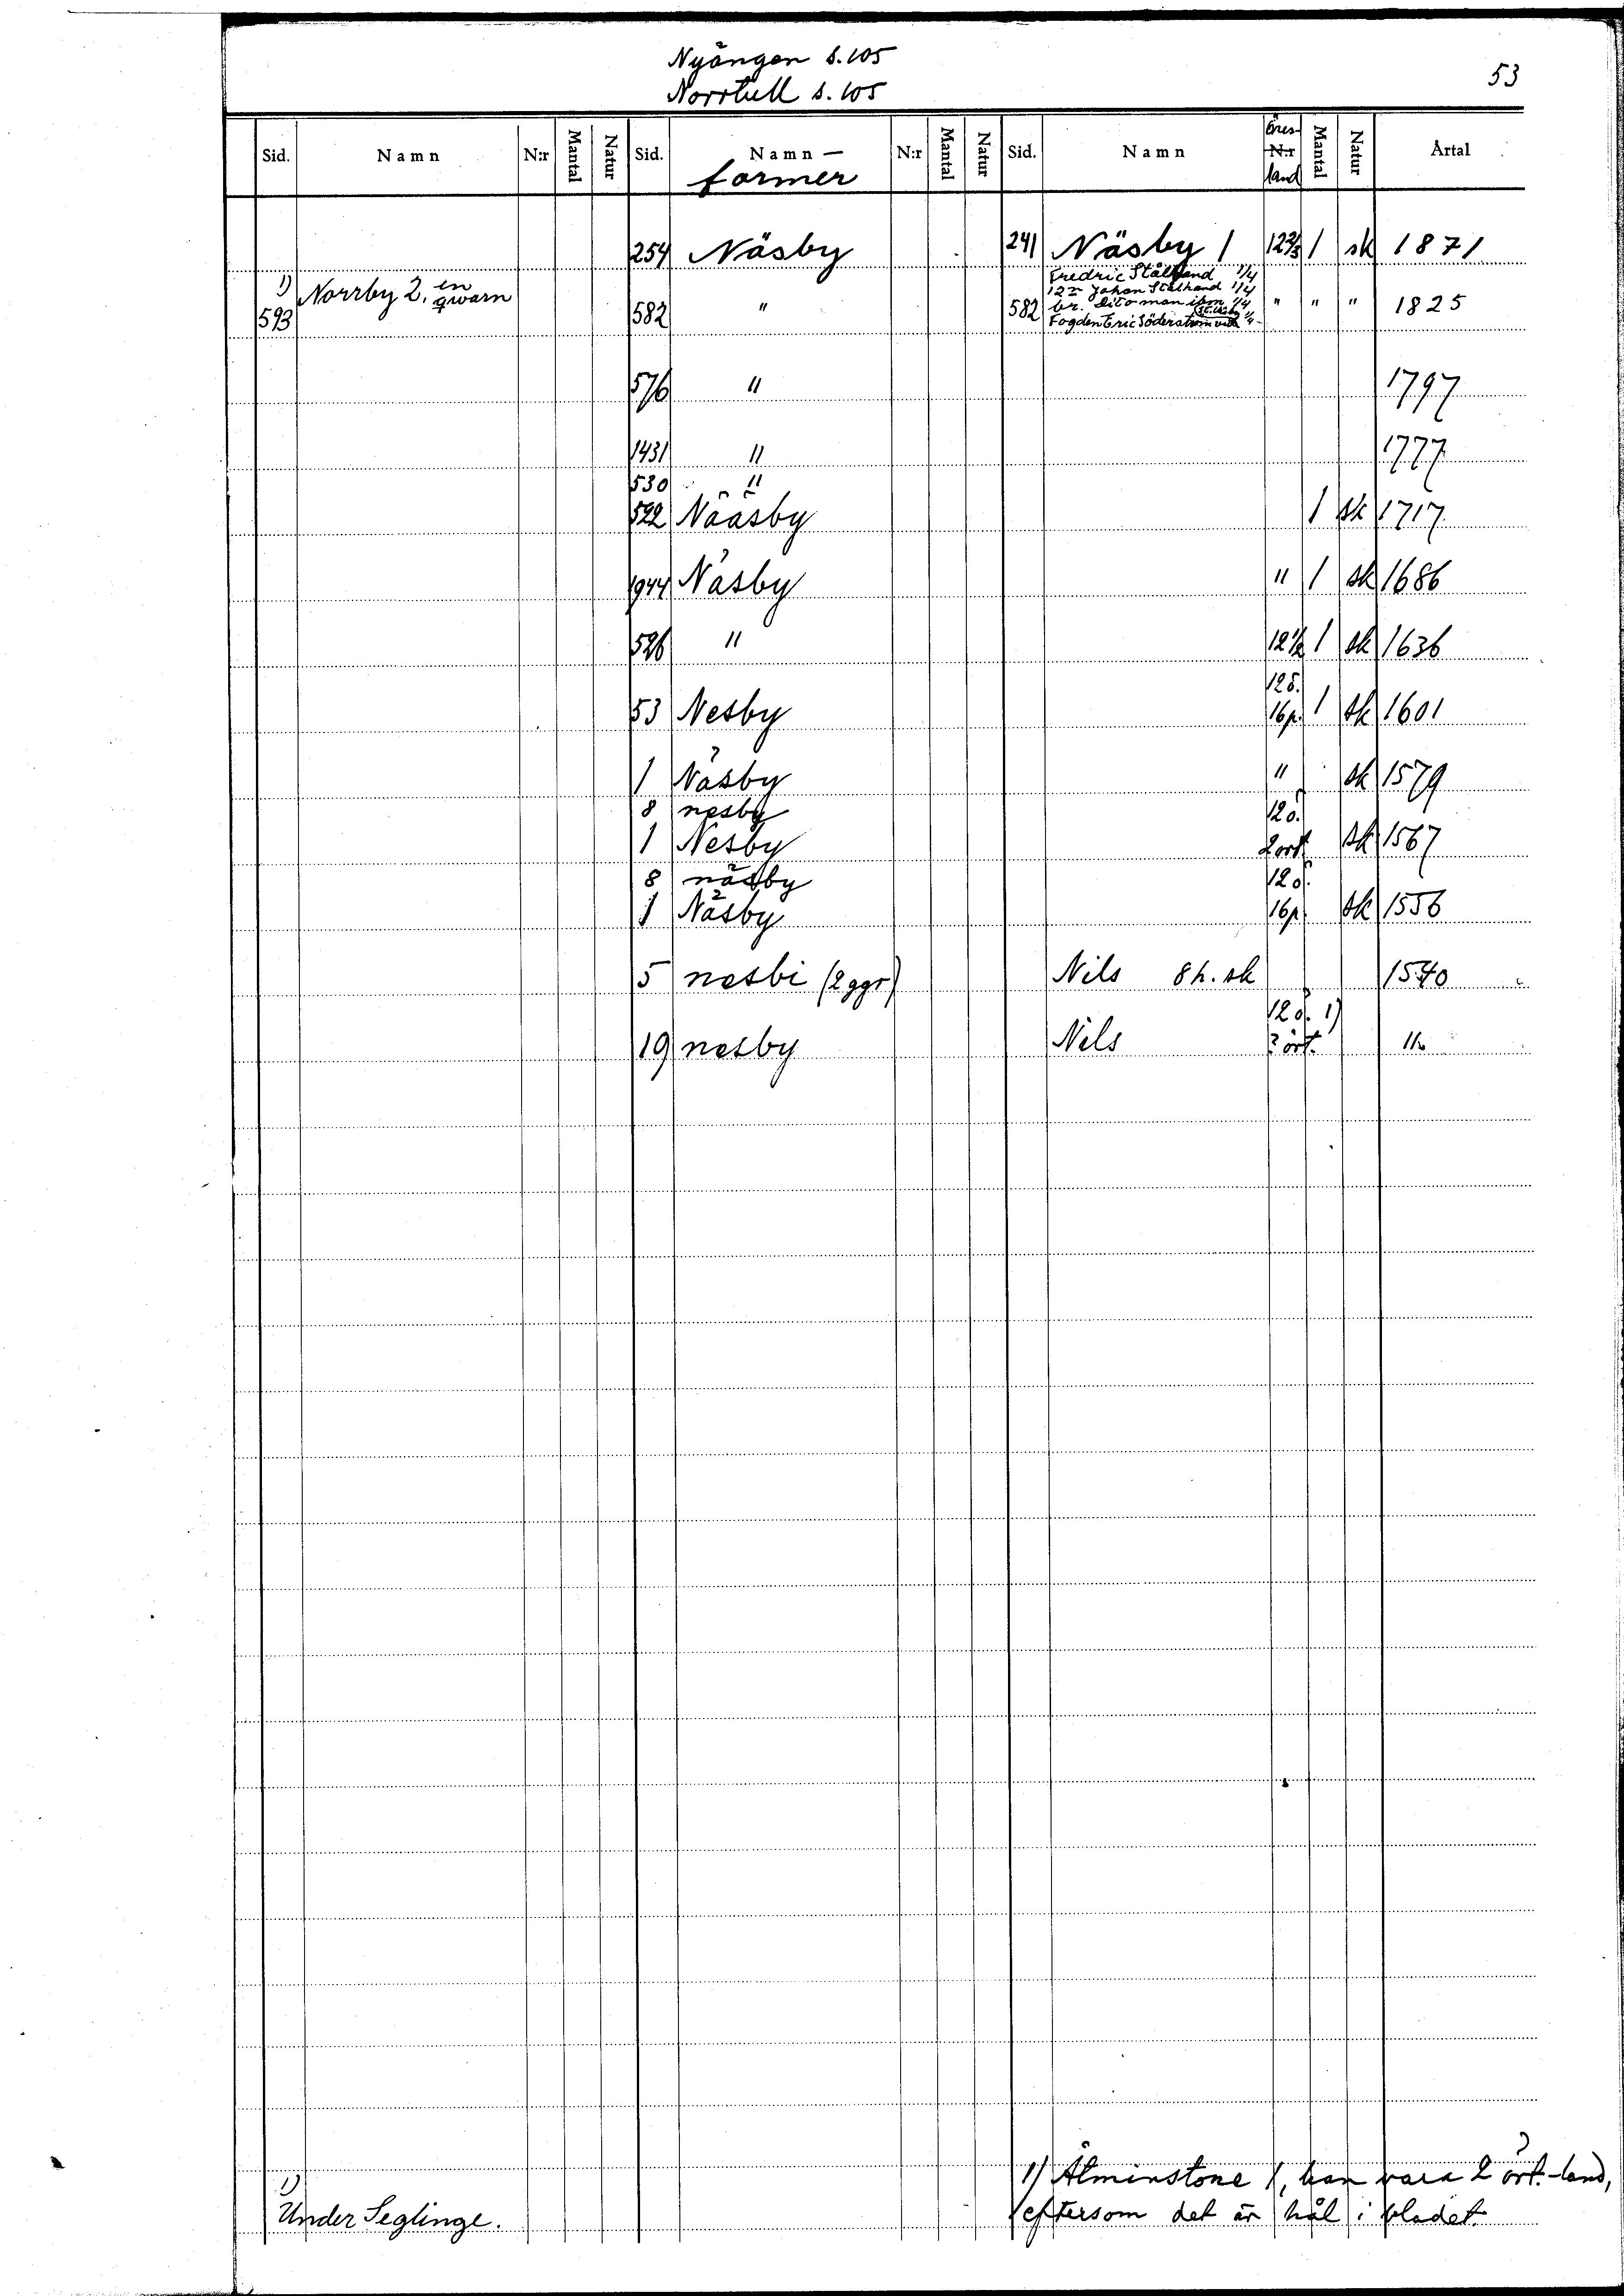 Nyängen s. 105
Norrtull s. 105
53
Sid. Namn N:r Mantal Natur Sid. Namn- former N:r Mantal Natur Sid. Namn Öres- N:r land Mantal Natur Årtal
254 Näsby 241 Näsby 1 12 2/3 1 sk 1871
1) 593 Norrby 2, en qwarn
582 " 582
Fredric Stålhand 1/4
Johan Stålhand 1/4
1/4
Fogden Eric Söderström
" " " 1825
576 " 1797
1431 " 1777
530 "
522 Nääsby 1 sk 1717
1944 Näsby " 1 sk 1686
526 " 12 1/2 1 sk 1636
53 Nesby 12 ö. 16 p. 1 sk 1601
1 Näsby " sk 1579
8 nesby 12 ö.
1 Nesby 2 ört sk 1567
8 näsby 12 ö.
1 Näsby 16 p. sk 1556
5 nesbi (2 ggr) Nils 8 h. sk 1540
19 nesby Nils 12 ö. 1) ? ört. "
1) Älminstone 1, kan vara 2 ört-land,
eftersom det är hål i bladet.
1)
Under Seglinge.